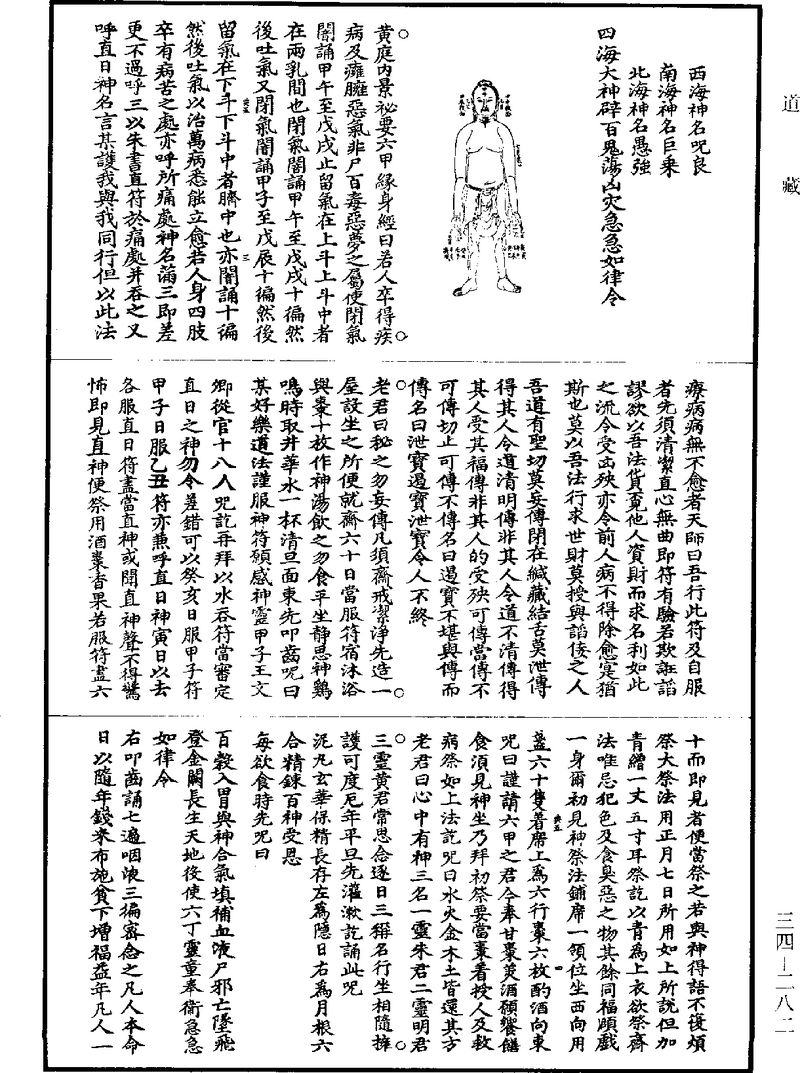 道藏
西海神名呪良
南海神名巨乘
北海神名愚強
四海大神辟百鬼蕩凶灾急急如律令
黃庭內景祕要六甲緣身經曰若人卒得疾
病及癰臃惡氣非尸百毒惡夢之屬使閉氣
闇誦甲午至戊戌止留氣在上斗上斗中者
在兩乳間也閉氣闇誦甲午至戊戌十徧然
後吐氣又閉氣闇誦甲子至戊辰十徧然後
留氣在下斗下斗中者臍中也亦闇誦十徧
然後吐氣以治萬病悉能立愈若人身四肢
卒有病苦之處亦呼所痛處神名滿三即差
更不過呼三以朱書直符於痛處并吞之又
呼直日神名言某護我與我同行但以此法
療病病無不愈者天師曰吾行此符及自服
者先須清潔直心無曲即符有驗若欺誑諂
謬欲以吾法貨覓他人資財而求名利如此
之流令受凶殃亦令前人病不得除愈寔猶
斯也莫以吾法行求世財莫授與諂佞之人
吾道有聖切莫妄傳閉在緘藏結舌莫泄傳
得其人令道清明傳非其人令道不清傳得
其人受其福傳非其人的受殃可傳當傳不
可傳切止可傳不傳名曰遏寶不堪與傳而
傳名曰泄寶遏寶泄寶令人不終
老君曰秘之勿妄傳凡須齋戒潔淨先造一
屋設坐之所便就齋六十日當服符宿沐浴
與棗十枚作神湯飲之勿食平坐靜思神鷄
鳴時取井華水一杯清旦面東先叩齒呪曰
某好樂道法謹服神符願感神靈甲子王文
卿從官十八人呪訖再拜以水吞符當審定
直日之神勿令差錯可以癸亥日服甲子符
甲子日服乙丑符亦兼呼直日神寅日以去
各服直日符盡當直神或聞直神聲不得驚
怖即見直神便祭用酒棗香果若服符盡六
十而即見者便當祭之若與神得語不復煩
祭大祭法用正月七日所用如上所說但加
青繒一丈五寸耳祭訖以青為上衣欲祭齋
法唯忌犯色及食臭惡之物其餘同福願戲
一身爾初見神祭法鋪席一領位坐西向用
盞六十隻著席上為六行棗六枚酌酒向東
呪曰謹請六甲之君今奉甘棗美酒願饗饍
食須見神坐乃拜初祭要當棗著授人及救
病祭如上法訖呪曰水火金木土皆還其方
老君曰心中有神三名一靈朱君二靈明君
三靈黃君常思念逐日三稱名行坐相隨擁
護可度厄年平旦先灌漱訖誦此呪
泥丸玄華保精長存左為隱日右為月根六
合精鍊百神受恩
每欲食時先呪曰
百穀入胃與神合氣填補血液尸邪亡墜飛
登金闕長生天地役使六丁靈童奉衛急急
如律令
右叩齒誦七遍咽液三徧密念之凡人本命
日以隨年錢米布施貧下增福益年凡人一
三四—二八二